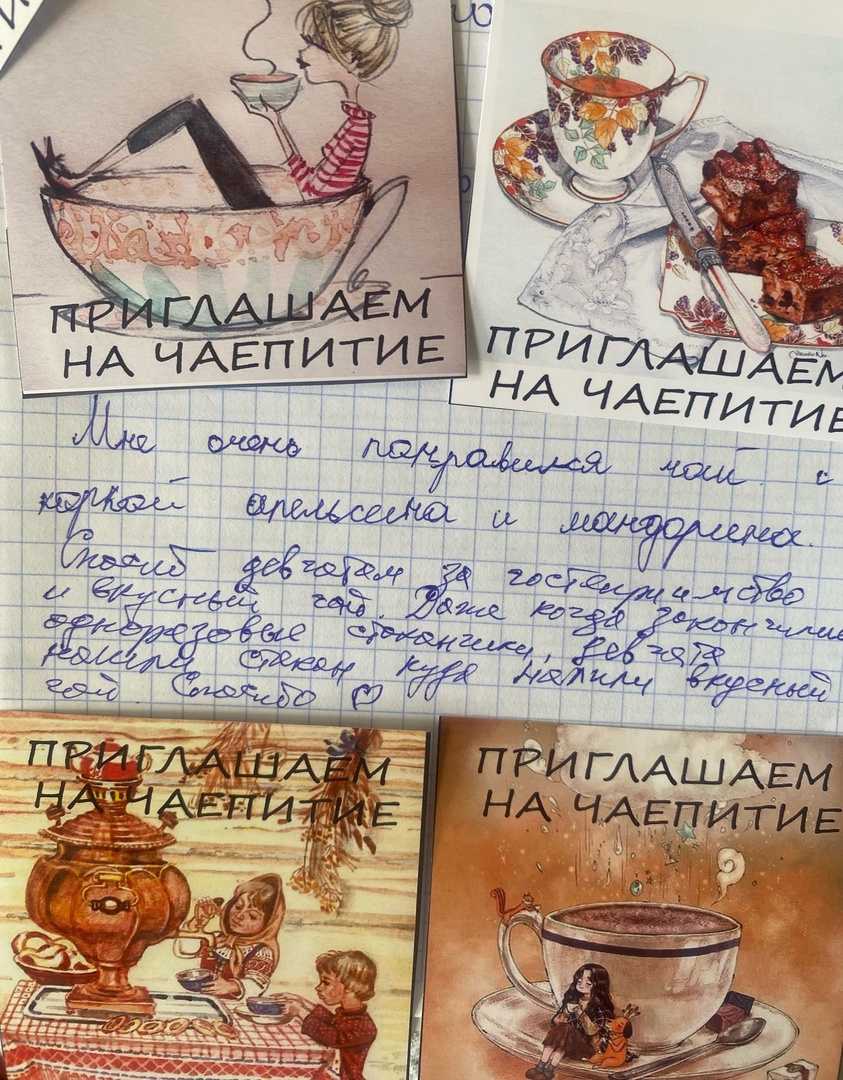 ПРИГЛАШАЕМ
НА ЧАЕПИТИЕ
ПРИГЛАШАЕМ
НА ЧАЕПИТИЕ
Мне очень понравился чай с
коркой апельсина и мандарина.
Спасиб девчатам за гостеприимство
и вкусный чай. Даже когда закончились
одноразовые стаканчики, девчата
нашли стакан куда налили вкусный
чай. Спасибо ♡
ПРИГЛАШАЕМ
НА ЧАЕПИТИЕ
ПРИГЛАШАЕМ
НА ЧАЕПИТИЕ